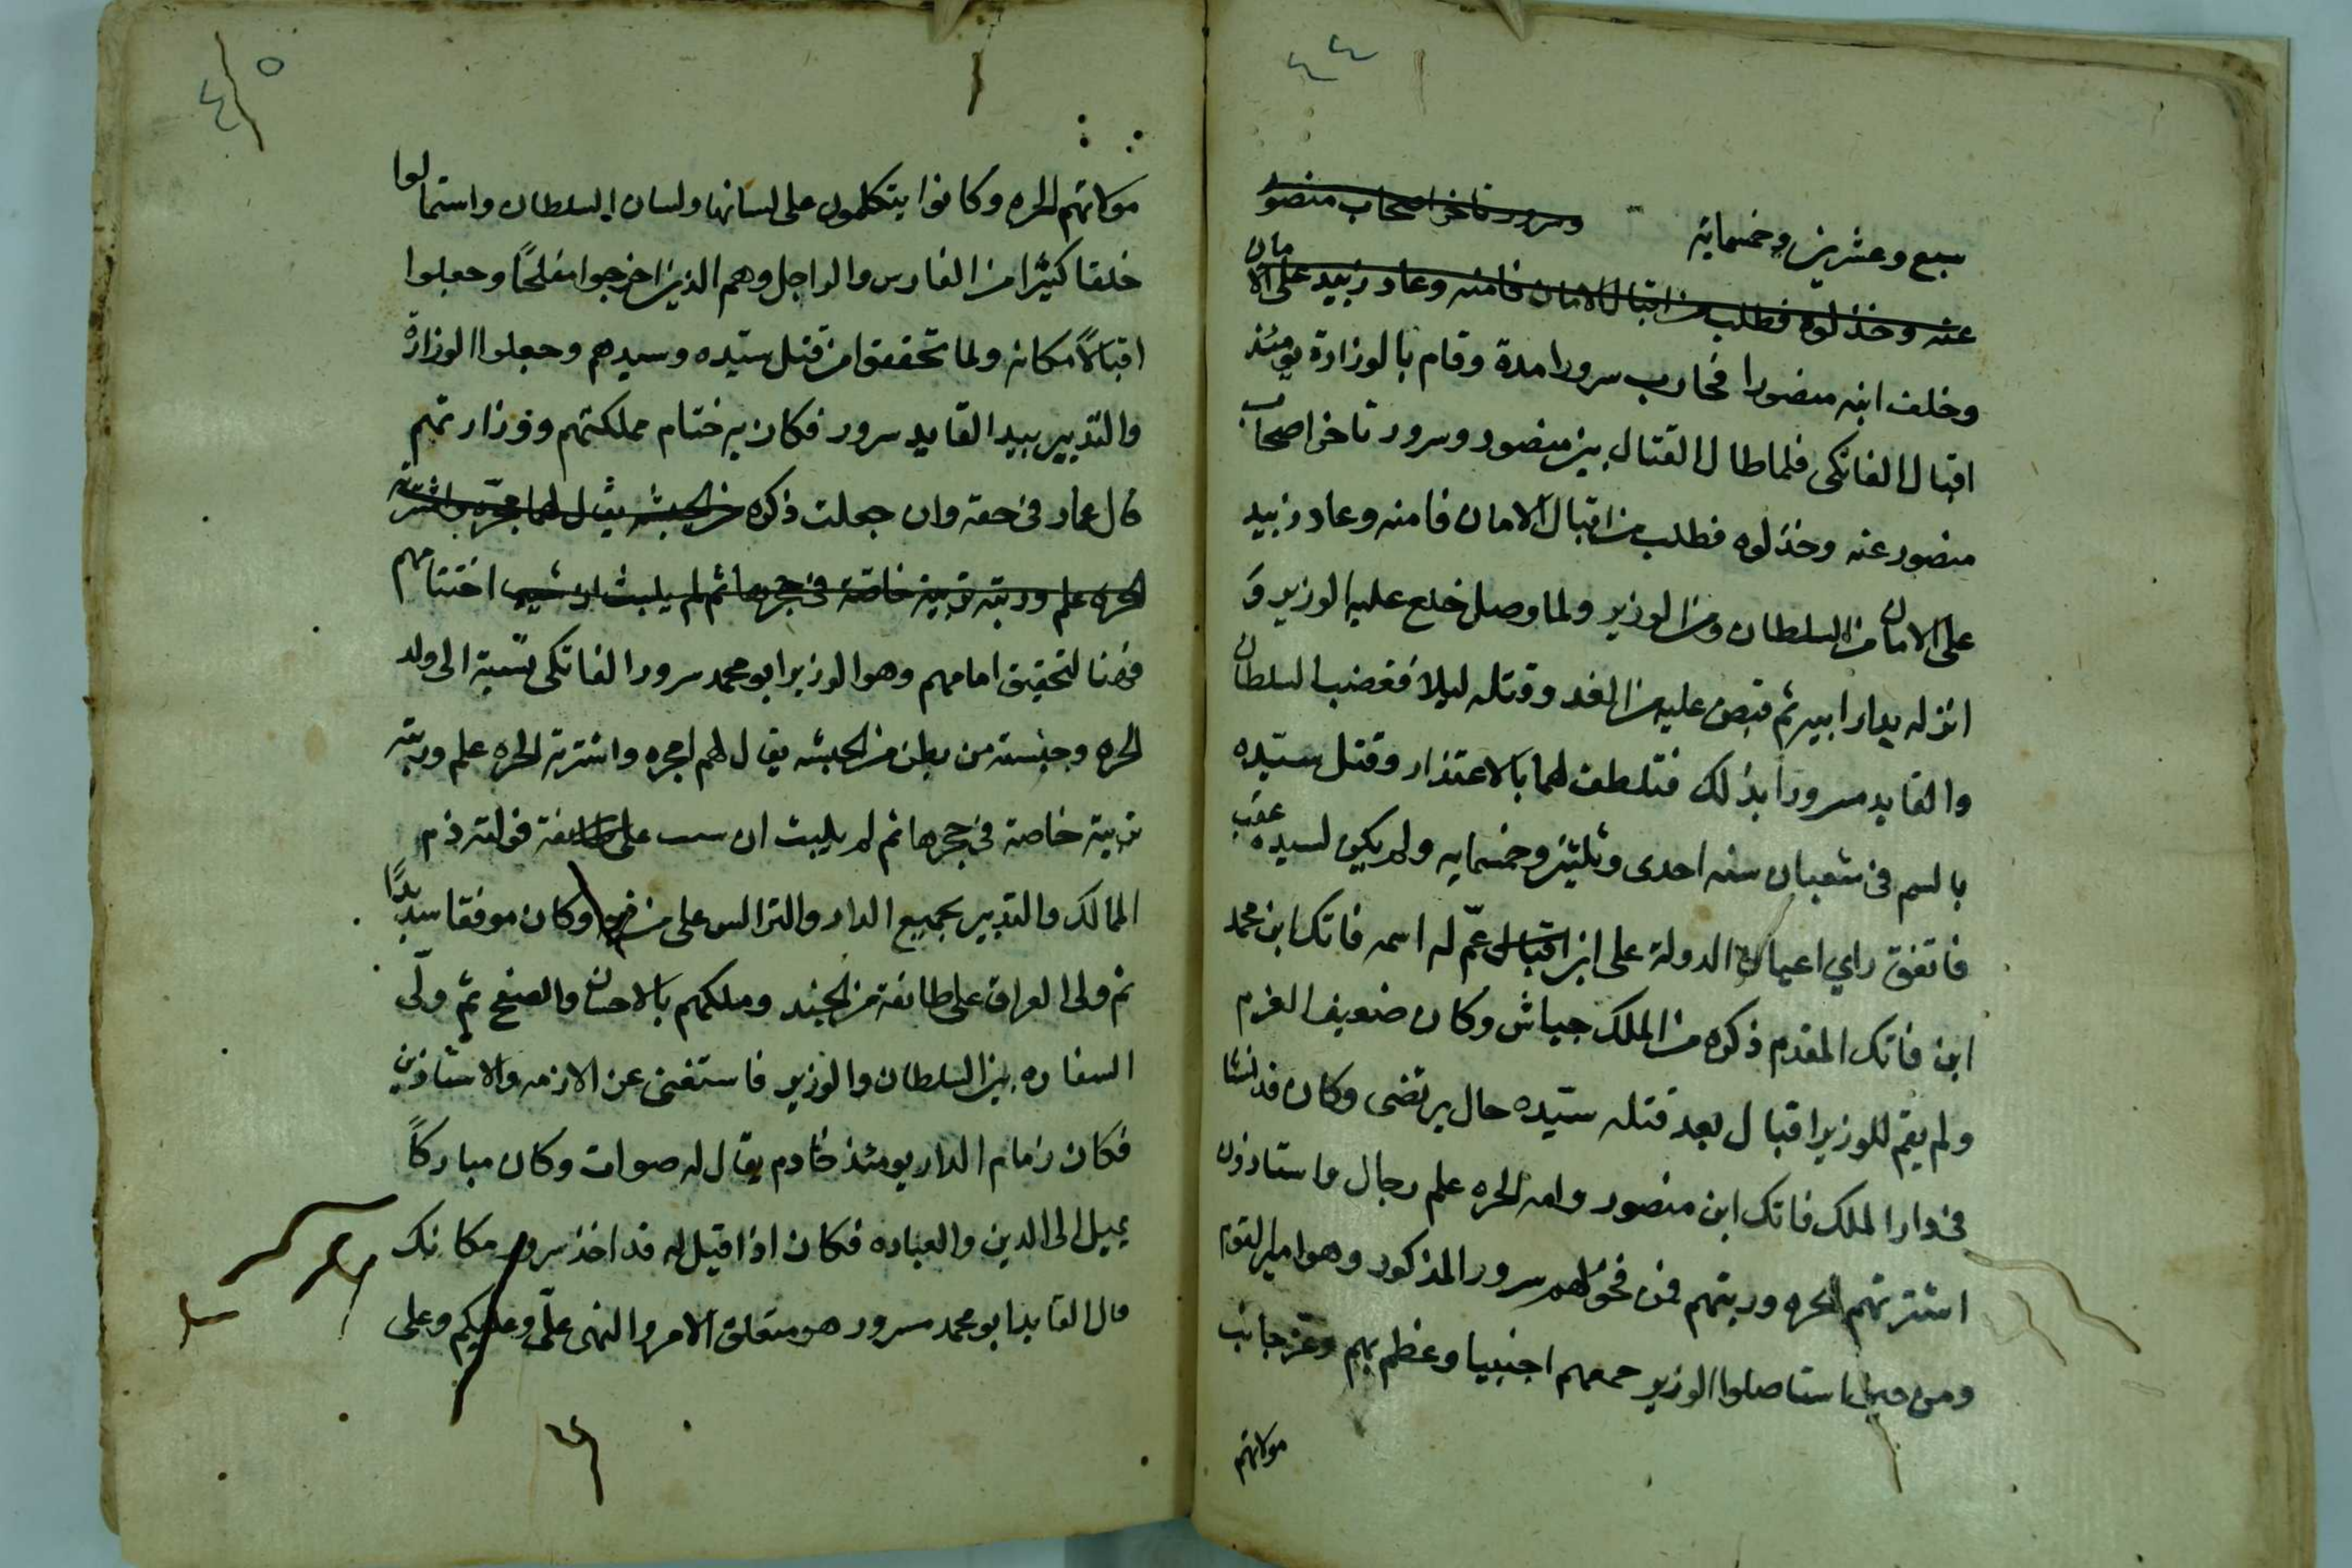 ٤٤
سبع وعشرين وخمسماية وسرور تاخر اصحاب منصور
عنه وخذلوه فطلب من اقبال الامان فامنه وعاد زبيد على الامان
وخلف ابنه منصورا فحارب سرورا مدة وقام بالوزارة يومئذ
اقبال الفاتكى فلما طال القتال بين منصور وسرور تاخر اصحاب
منصور عنه وخذلوه فطلب من اقبال الامان فامنه وعاد زبيد
على الامان من السلطان ومن الوزير ولما وصل خلع عليه الوزير و
انزله بدار ابيه ثم قبض عليه من الغد وقتله ليلا فغضب السلطان
والقايد سرورا بذلك فتلطف لهما بالاعتذار وقتل سيده
بالسم فى شعبان سنه احدى وثلثين وخمسمايه ولم يكن لسيده عقب
فاتفق راي اعيان الدولة على ابن اقبال عمّ له اسمه فاتك ابن محمد
ابن فاتك المقدم ذكره من الملك جياش وكان ضعيف العزم
ولم يقم للوزير اقبال بعد قتله سيّده حال يرتضى وكان قد نشا
فى دار الملك فاتك ابن منصور وامه الحره علم رجال واستاذون
اشترتهم الحره وربتهم فمن فحولهم سرور المذكور وهو امير القوم
ومن حين استاصلوا الوزير جمعهم اجنبيا وعظم بهم وعز جانب
مولاتهم
٤٥
مولاتهم الحره وكانوا يتكلمون على لسانها ولسان السلطان واستمالوا
خلقا كثيرا من الفارس والراجل وهم الذين اخرجوا مفلحًا وجعلوا
اقبالاً مكانه ولما تحققوا من قتل سيّده وسيدهم وجعلوا الوزارة
والتدبير بيد القايد سرور فكان به ختام مملكتهم ووزارتهم
قال عمار فى حقه وان جعلت ذكره من الحبشه يقال لهما مجره واشترته
الحره علم وربته تربية خاصة فى حجرها ثم لم يلبث ان اختتامهم
فهنا لتحقيق امامهم وهو الوزير ابو محمد سرور الفاتكى نسبة الى ولد
الحره وجنسته من بطن من الحبشه يقال لهم امجره واشترته الحره علم وربته
تربية خاصة فى حجرها ثم لم يلبث ان على طايفة فولته ذم
المالك والتدبير بجميع الدار والتراالس على من فيها وكان موفقا سديدًا
ثم ولى العراق على طائفة من الجند وملكهم بالاحسان والصفح ثم ولّى
السفاره بين السلطان والوزير فاستغنى عن الازمه والاستاذين
فكان زمام الدار يومئذ خادم يقال له صواب وكان مباركاً
يميل الى الدين والعباده فكان اذا قيل له قد اخذ سرور مكانك
قال القايد ابو محمد سرور هو متعلق الامر والنهى علىّ وعليكم وعلى